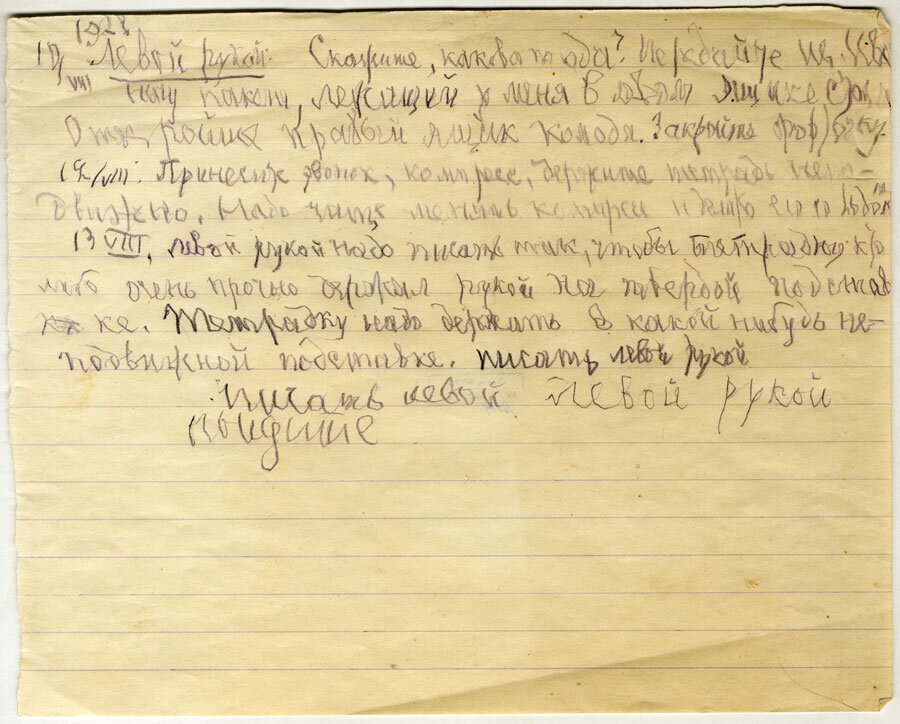 1928
10/VIII Левой рукой. Скажите, какова погода? Передайте
пакет, лежащий у меня в левом ящике
Откройте правый ящик комода. Закройте
12/VIII. Принесите звонок, компресс, держите тетрадь непо-
движно. Надо чаще менять компресс и
13 VIII, левой рукой надо писать так, чтобы тетрадку кто
либо очень прочно держал рукой на твердой подстав
ке. Тетрадку надо держать в какой нибудь не-
подвижной подставке. писать левой рукой
писать левой левой рукой
выдите